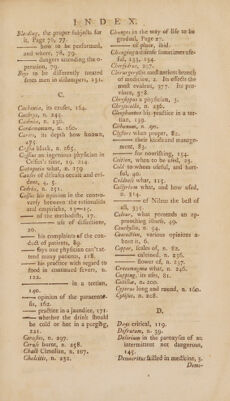 INDEX.
Bleeding, the proper subjects for
it, Page 76, 77.
—— how to be performed,
and where, 78, 79.
—— dangers attending the o-
peration, 79.
Boys to be differently treated
from men in distempers, 131.
C.
Cachexia, its causes, 164.
Cachrys, n. 249.
Cadmia, n. 236.
Cardamomum, n. 260.
Caries, its depth how known,
475.
Casia black, n. 265.
Cassius an ingenious physician in
Celsus's time, 19. 214
Catapotia what, n. 259
Causes of diseases occult and evi-
dent, 4, 5.
Cedria, n. 251.
Celsus his opinion in the contro-
versy between the rationalists
and empiricks, 12—15.
—— of the methodists, 17.
—— his use of dissections,
20.
—— his complaints of the con-
duct of patients, 89.
—— says one physician can't at-
tend many patients, 118.
—— his practice with regard to
food in continued fevers, n.
122.
—— in a tertian,
140.
—— opinion of the paracente-
sis, 162.
—— practice in a jaundice, 171.
—— whether the drink should
be cold or hot in a purging,
221.
Cerastes, n. 297.
Ceruss burnt, n. 258.
Chalk Cimolian, n. 107.
Chalcitis, n. 232.
Changes in the way of life to be
gradual, Page 27.
—— of place, ibid.
Changing a trade sometimes use-
ful, 133, 134.
Chersydrus, n. 297.
Chirurgery the most antient branch
of medicine, 2. Its effects the
most evident, 377. Its pro-
vince, 378.
Chrysippus a physician, 3.
Chrysocolla, n. 236.
Cleophantus his practice in a ter-
tian, 139.
Clibanum, n. 90.
Clysters when proper, 82.
—— their kinds and manage-
ment, 83.
—— for nourishing, 154.
Coition, when to be used, 23.
Cold to whom useful, and hurt-
ful, 40.
Coldness what, 115.
Collyrium what, and how used,
n. 314.
—— of Nileus the best of
all, 335.
Colour, what portends an ap-
proaching illness, 49.
Conchylia, n. 54.
Concoction, various opinions a-
bout it, 6.
Copper, scales of, n. 82.
—— calcined. n. 236.
—— flower of, n. 237.
Crocomagma what, n. 246.
Cupping, its uses, 81.
Cutiliæ, n. 200.
Cyperus long and round, n. 260.
Cyphius, n. 268.
D.
Days critical, 119.
Defrutum, n. 39.
Delirium in the paroxysm of an
intermittent not dangerous,
145.
Democritus skilled in medicine, 3.
Demo-